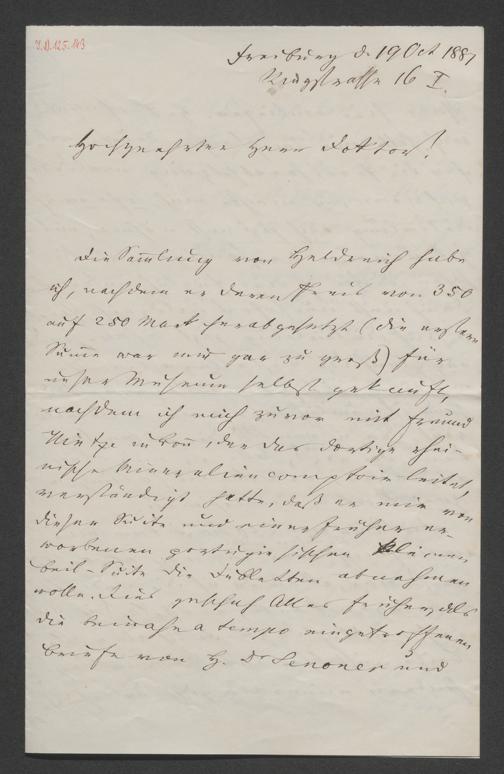 J.N. 125.143
Freiburg d. 19 Oct 1887
Ringstrasse 16 I.
Hochgeehrter Herr Doktor!
Die Sammlung von Heldreich habe
ich, nachdem er deren Preis von 350
auf 250 Mark herabgesetzt (die erstere
Summe war mir gar zu groß) für
unser Museum selbst gekauft,
nachdem ich mich zuvor mit Freund
Hintze in Bonn, der das dortige rhei-
nische Mineraliencomptoir leitet,
verständigt hatte, daß er mir von
dieser Suite und einer früher er-
worbenen portugiesischen
beil-Suite die Dubletten abnehmen
wolle. Dies geschah Alles früher, als
die beinahe a tempo eingetroffenen
Briefe von H. Dr Senoner und